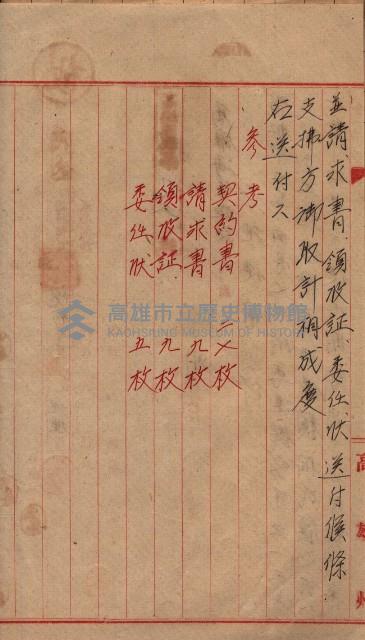 並請求書、領收証、委任狀送付候條
支拂方御取計相成度
右送付ス
參考
契約書 〤枚
請求書 九枚
領收証 九枚
委任狀 五枚
高雄州
高雄市立歷史博物館
KAOHSIUNG MUSEUM OF HISTORY